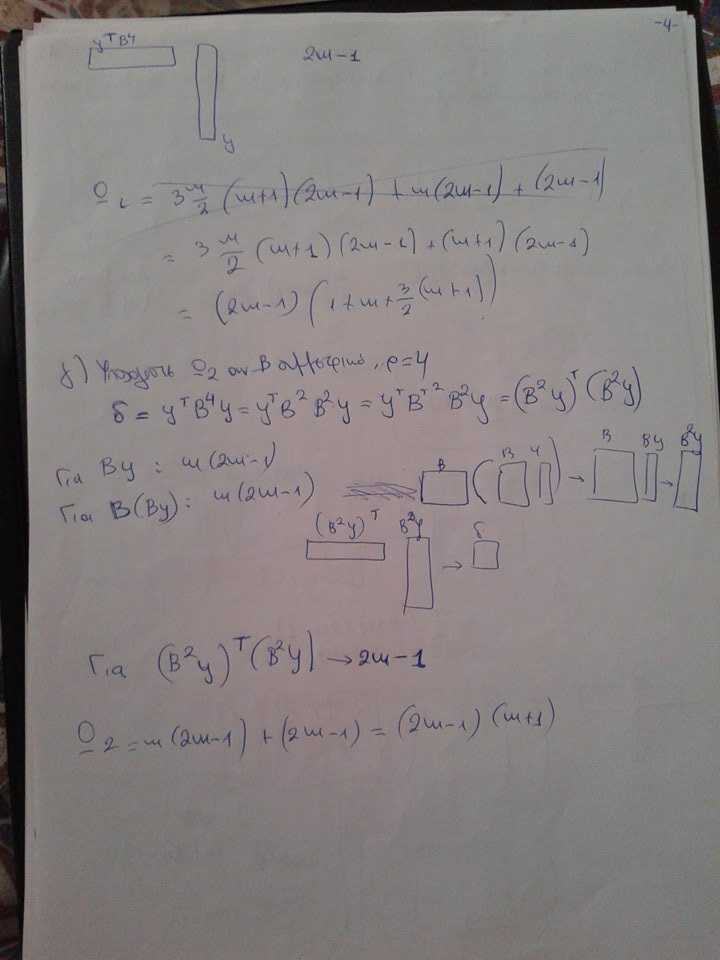 -4-
yᵀB4
2m-1
y
O₁ = 3 m/2 (m+1)(2m-1) + m(2m-1) + (2m-1)
= 3 m/2 (m+1)(2m-1) + (m+1)(2m-1)
= (2m-1)(1+m+3/2(m+1))
γ) O₂ αν B συμμετρικό, ρ=4
δ = yᵀB⁴y = yᵀB²B²y = yᵀBᵀ²B²y = (B²y)ᵀ(B²y)
Για By : m(2m-1)
Για B(By): m(2m-1)
B ( B y ) → B By → B²y
(B²y)ᵀ B²y → δ
Για (B²y)ᵀ(B²y) → 2m-1
O₂ = m(2m-1) + (2m-1) = (2m-1)(m+1)